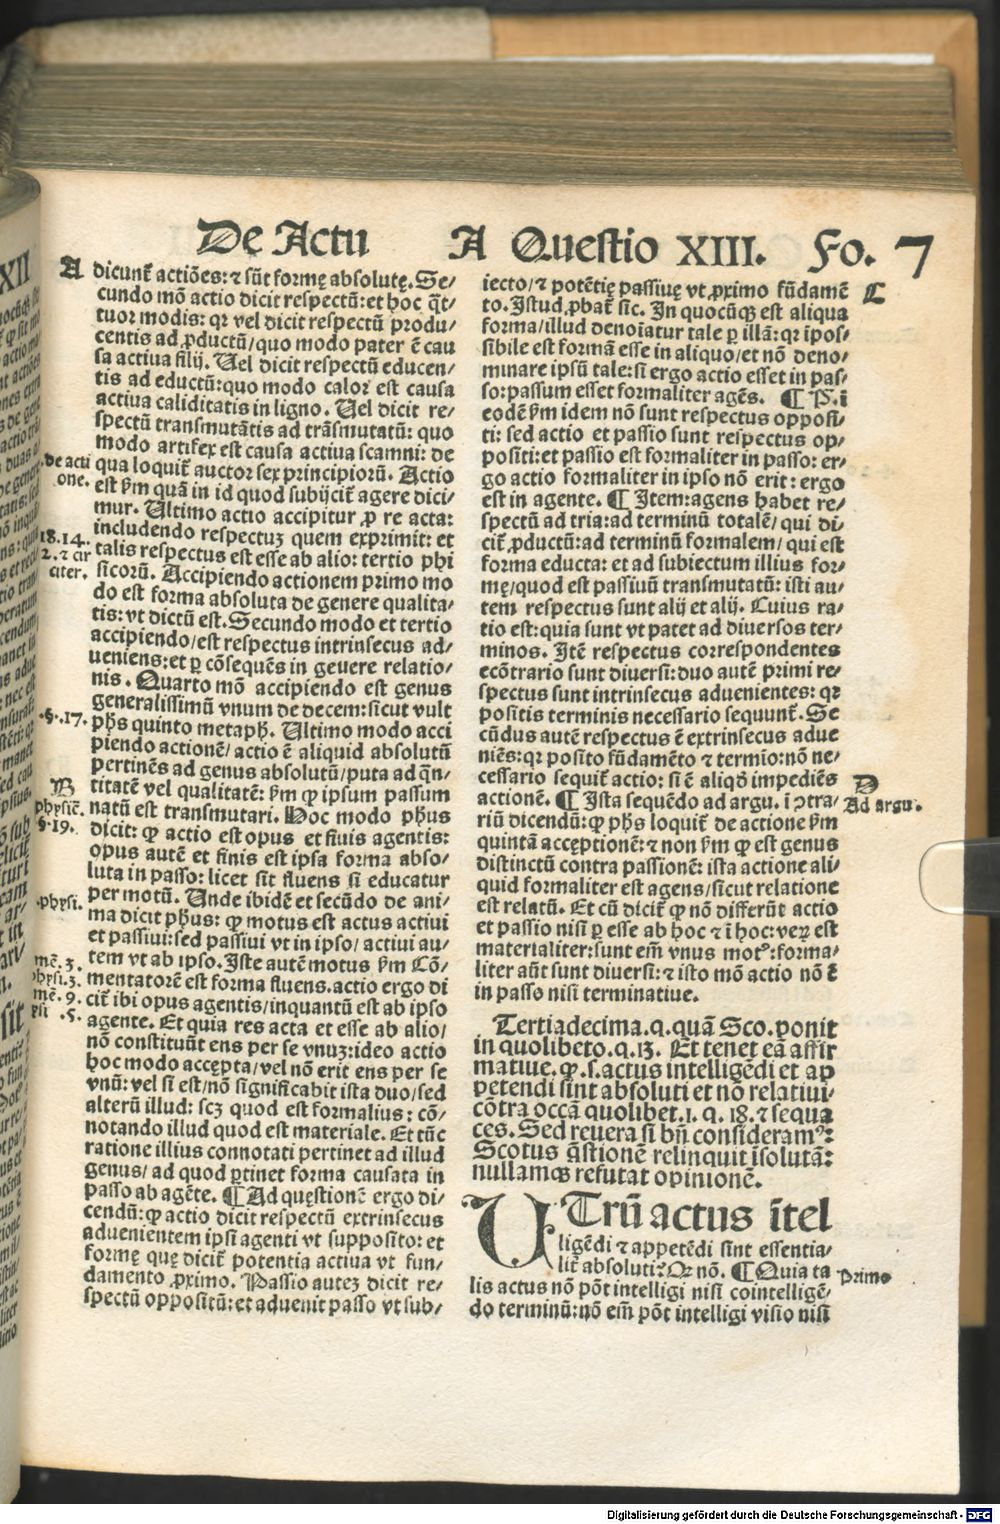 De Actu A Questio XIII. Fo. 7
A
dicunt᷑ actiões: ⁊ sũt formę absolutę. Se/
cundo mõ actio dicit respectũ: et hoc q̃t/
tuor modis: qꝛ vel dicit respectũ produ/
centis ad ꝓductũ/ quo modo pater ẽ cau
sa actiua filij. Uel dicit respectũ educen/
tis ad eductũ: quo modo calor est causa
actiua caliditatis in ligno. Uel dicit re/
spectũ transmutãtis ad trãsmutatũ: quo
modo artifex est causa actiua scamni: de
qua loquit᷑ auctor sex principiorũ. Actio
est ẜm quã in id quod subijcit᷑ agere dici/
mur. Ultimo actio accipitur ꝓ re acta:
includendo respectuꝫ quem exprimit: et
talis respectus est esse ab alio: tertio phi
sicorũ. Accipiendo actionem primo mo
do est forma absoluta de genere qualita/
tis: vt dictũ est. Secundo modo et tertio
accipiendo/ est respectus intrinsecus ad/
ueniens: et ꝑ cõsequẽs in geuere relatio/
nis. Quarto mõ accipiendo est genus
generalissimũ vnum de decem: sicut vult
ph̃s quinto metaph. Ultimo modo acci
piendo actionẽ/ actio ẽ aliquid absolutũ
pertinẽs ad genus absolutũ/ puta ad q̃n/
titatẽ vel qualitatẽ: ẜm ꝙ ipsum passum
natũ est transmutari. Hoc modo ph̃us
dicit: ꝙ actio est opus et finis agentis:
opus autẽ et finis est ipsa forma abso/
luta in passo: licet sit fluens si educatur
per motũ. Unde ibidẽ et secũdo de ani/
ma dicit ph̃us: ꝙ motus est actus actiui
et passiui: sed passiui vt in ipso/ actiui au/
tem vt ab ipso. Iste autẽ motus ẜm Cõ/
mentatorẽ est forma fluens. actio ergo di
cit᷑ ibi opus agentis/ inquantũ est ab ipso
agente. Et quia res acta et esse ab alio/
nõ constituũt ens per se vnuꝫ: ideo actio
hoc modo accepta/ vel nõ erit ens per se
vnũ: vel si est/ nõ significabit ista duo/ sed
alterũ illud: scꝫ quod est formalius: cõ/
notando illud quod est materiale. Et tũc
ratione illius connotati pertinet ad illud
genus/ ad quod ꝑtinet forma causata in
passo ab agẽte. ¶ Ad questionẽ ergo di/
cendũ: ꝙ actio dicit respectũ extrinsecus
aduenientem ipsi agenti vt supposito: et
formę quę dicit᷑ potentia actiua vt fun/
damento ꝓximo. Passio auteꝫ dicit re/
spectũ oppositũ: et aduenit passo vt sub/
de acti
one.
18.14.
2. ⁊ cir
citer.
.§..17.
B
physicẽ.
§.19.
.physi.
mẽ. 3.
physi.3.
mẽ. 9.
.5.
iecto/ ⁊ potẽtię passiuę vt ꝓximo fũdamẽ
to. Istud ꝓbat᷑ sic. In quocũqꝫ est aliqua
forma/ illud denoĩatur tale ꝑ illã: qꝛ ĩpos/
sibile est formã esse in aliquo/ et nõ deno/
minare ipsũ tale: si ergo actio esset in pas/
so: passum esset formaliter agẽs. ¶ P. ĩ
eodẽ ẜm idem nõ sunt respectus opposi/
ti: sed actio et passio sunt respectus op/
positi: et passio est formaliter in passo: er/
go actio formaliter in ipso nõ erit: ergo
est in agente. ¶ Item: agens habet re/
spectũ ad tria: ad terminũ totalẽ/ qui di/
cit᷑ ꝓductũ: ad terminũ formalem/ qui est
forma educta: et ad subiectum illius for/
mę/ quod est passiuũ transmutatũ: isti au/
tem respectus sunt alij et alij. Cuius ra/
tio est: quia sunt vt patet ad diuersos ter/
minos. Itẽ respectus correspondentes
ecõtrario sunt diuersi: duo autẽ primi re/
spectus sunt intrinsecus aduenientes: qꝛ
positis terminis necessario sequunt᷑. Se
cũdus autẽ respectus ẽ extrinsecus adue
niẽs: qꝛ posito fũdamẽto ⁊ termio: nõ ne/
cessario sequit᷑ actio: si ẽ aliqđ impediẽs
actionẽ. ¶ Ista sequẽdo ad argu. ĩ ꝯtra/
riũ dicendũ: ꝙ ph̃s loquit᷑ de actione ẜm
quintã acceptionẽ: ⁊ non ẜm ꝙ est genus
distinctũ contra passionẽ: ista actione ali/
quid formaliter est agens/ sicut relatione
est relatũ. Et cũ dicit᷑ ꝙ nõ differũt actio
et passio nisi ꝑ esse ab hoc ⁊ ĩ hoc: veꝝ est
materialiter: sunt em̃ vnus motꝰ: forma/
liter aũt sunt diuersi: ⁊ isto mõ actio nõ ẽ
in passo nisi terminatiue.
C
D
Ad argu.
Tertiadecima. q. quã Sco. ponit
in quolibeto. q. 13. Et tenet eã affir
matiue. ꝙ .s. actus intelligẽdi et ap
petendi sint absoluti et nõ relatiui
cõtra occã quolibet. 1. q. 18. ⁊ sequẽ
ces. Sed reuera si bñ consideramꝰ:
Scotus q̃stionẽ relinquit ĩsolutã:
nullamqꝫ refutat opinionẽ.
UTrũ actus ĩtel
ligẽdi ⁊ appetẽdi sint essentia/
lit᷑ absoluti? Qꝛ nõ. ¶ Quia ta
lis actus nõ põt intelligi nisi cointelligẽ/
do terminũ: nõ em̃ põt intelligi visio nisi
Primo
Digitalisierung gefördert durch die Deutsche Forschungsgemeinschaft - DFG